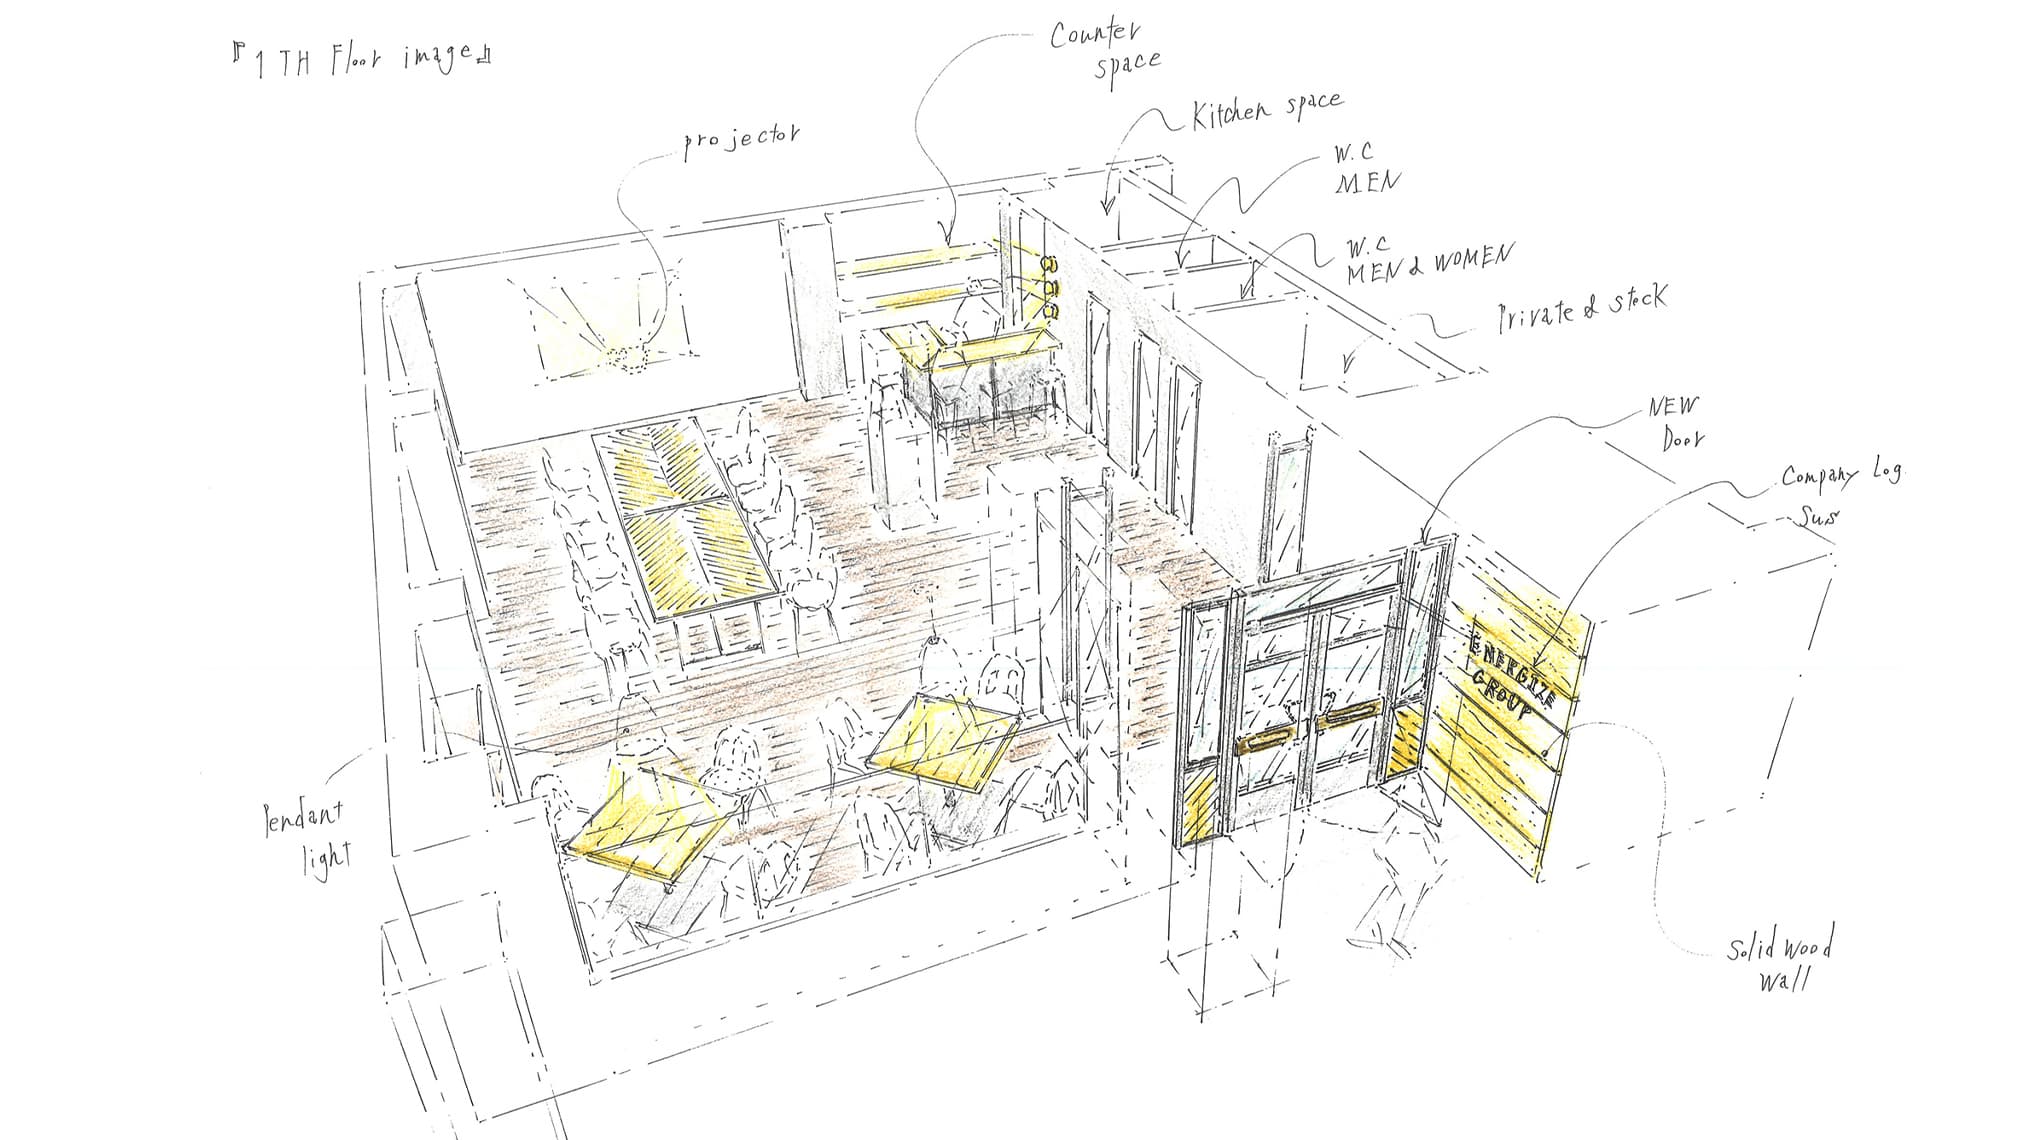 『1 TH Floor image』
Counter
space
projector
Kitchen space
W.C
MEN
W.C
MEN & WOMEN
Private & stock
NEW
Door
Company Log
Sus
ENERGIZE
GROUP
Pendant
light
Solid wood
wall